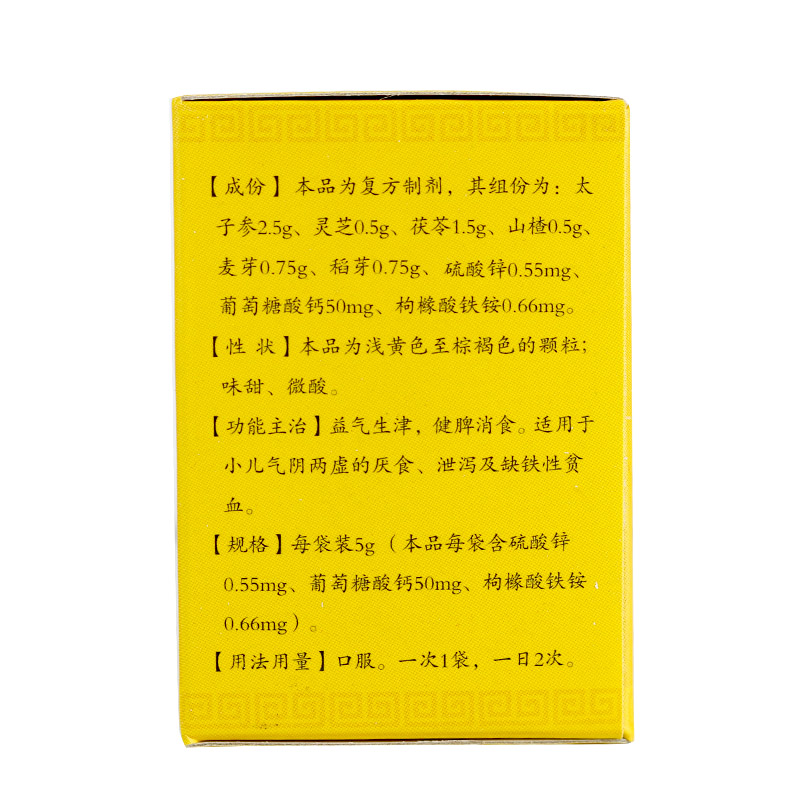 【成份】本品为复方制剂，其组份为：太
子参2.5g、灵芝0.5g、茯苓1.5g、山楂0.5g、
麦芽0.75g、稻芽0.75g、硫酸锌0.55mg、
葡萄糖酸钙50mg、枸橼酸铁铵0.66mg。
【性 状】本品为浅黄色至棕褐色的颗粒；
味甜、微酸。
【功能主治】益气生津，健脾消食。适用于
小儿气阴两虚的厌食、泄泻及缺铁性贫
血。
【规格】每袋装5g（本品每袋含硫酸锌
0.55mg、葡萄糖酸钙50mg、枸橼酸铁铵
0.66mg）。
【用法用量】口服。一次1袋，一日2次。